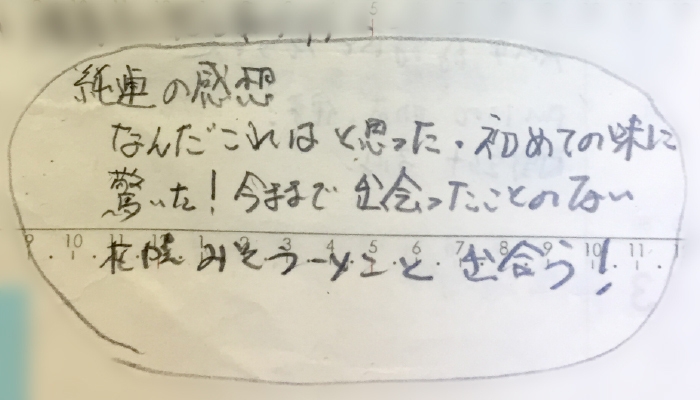 純連の感想
なんだこれはと思った。初めての味に
驚いた!今まで出会ったことのない
札幌みそラーメンと出会う!
9 10 11 12 1 2 3 4 5 6 7 8 9 10 11 1